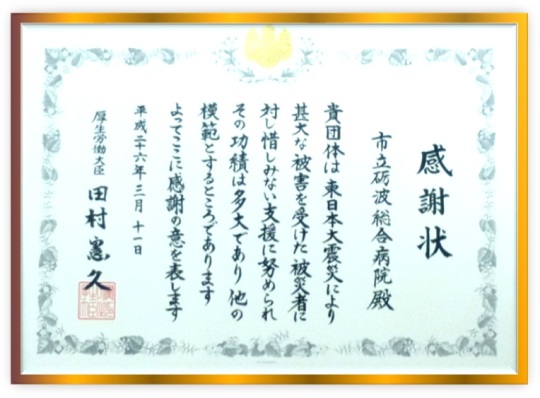 感謝状
市立砺波総合病院殿
貴団体は東日本大震災により
甚大な被害を受けた被災者に
対し惜しみない支援に努められ
その功績は多大であり他の
模範とするところであります
よってここに感謝の意を表します
平成二十六年三月十一日
厚生労働大臣 田村憲久